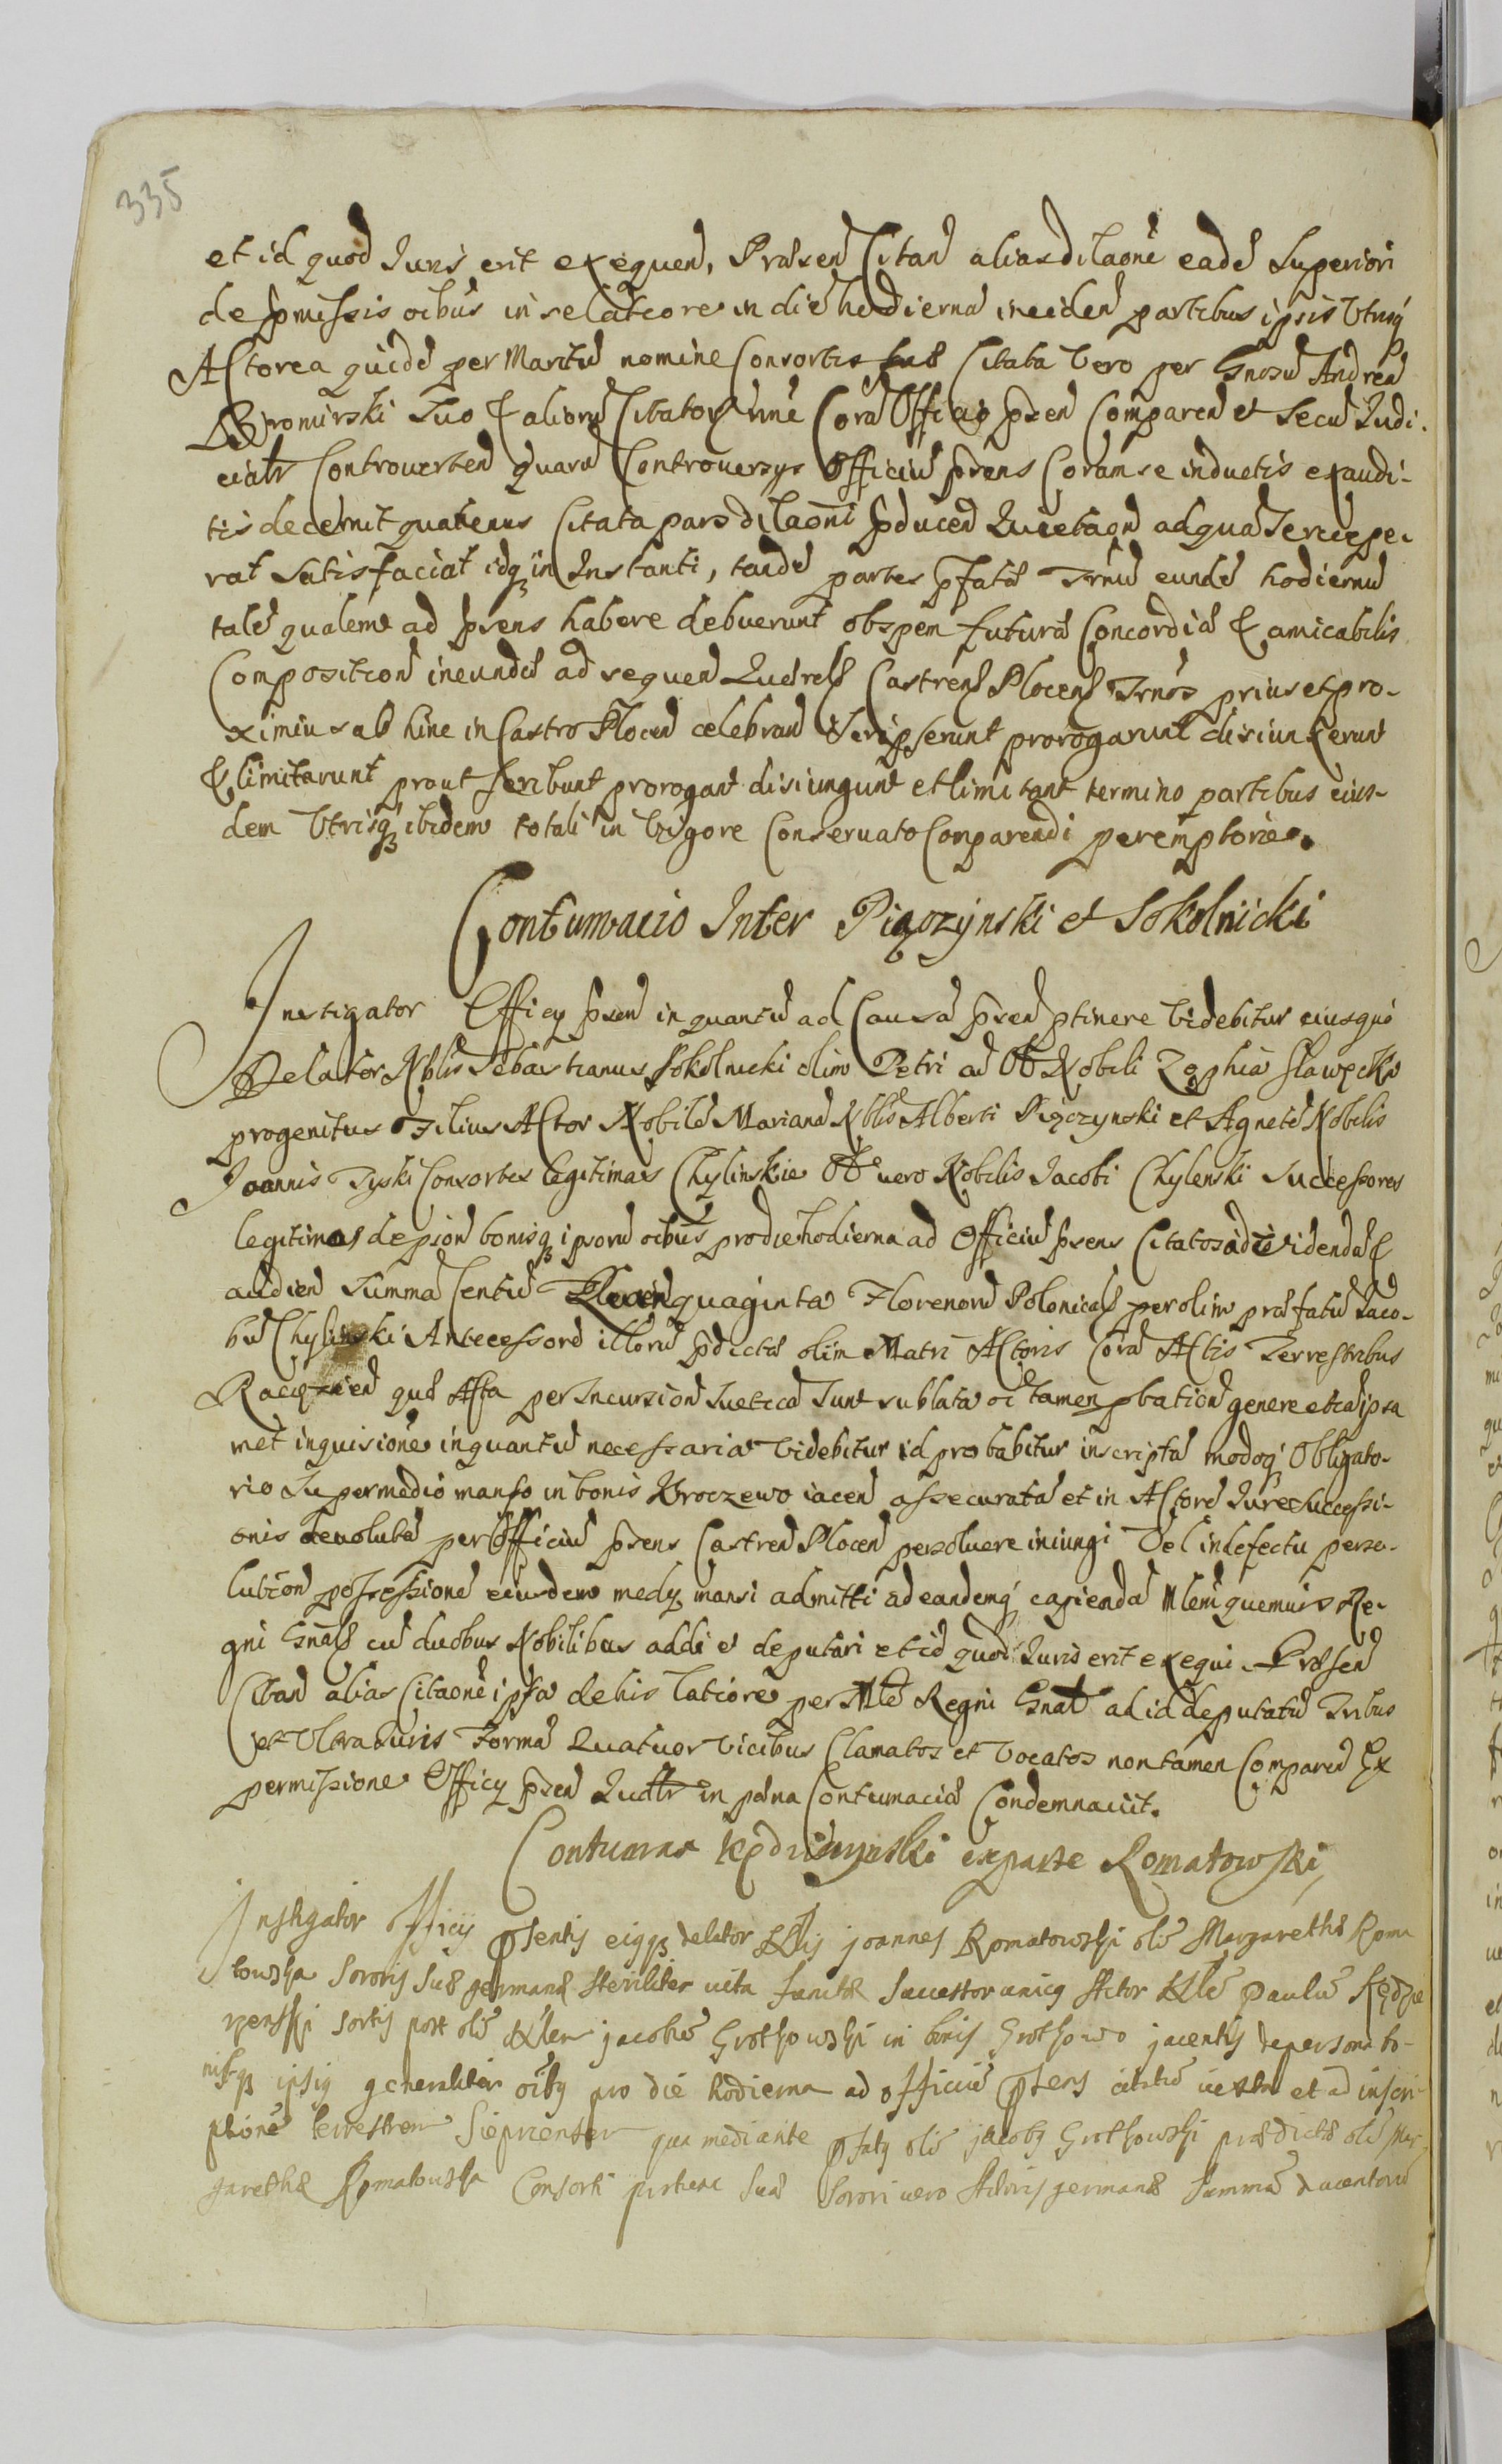 335
et id quod Juris erit exequen, Præsen Citan alias dilaone eade Superiori
de pmissis oibus in relatiore in die hodierna inciden partibus ipsis Utrisq
Actorea quide per Maritu nomine Consortis suæ Citata Vero per Gnosu Andrea
Bromirski Suo & aliorum Citator nne Cora Officio psen Comparen et Secu Judi-
cialr Controverten Quaru Controversys Officiu psens Coram se inductis exaudi-
tis decernit quatenus Citata pars dilaoni pducen Quietaon ad qua Se recepe-
rat Satisfaciat idq in Instanti, tande partes pfatæ Trnu eunde hodiernu
tale qualem ad psens habere debuerunt ob spem futuræ Concordiæ & amicabilis
Composition ineundæ ad sequen Querels Castrens Plocens Trnos prius et pro-
ximius ab hinc in Castro Plocen celebran Scripserunt prorogarunt disiunxerunt
& limitarunt prout Scribunt prorogant disiungunt et limitant termino partibus eius-
dem Utrisq ibidem totali in Vigore Conservato Comparendi peremptorie.
Contumacio Inter Piączynski et Sokolnicki
Instigator Officy psen in quantu ad Causa psen ptinere Videbitur eiusque
Delator Nblis Sebastianus Sokolnicki olim Petri ac Nobili Zophia Sławęcka
progenitus Filius Actor Nobile Mariana Nblis Alberti Piączynski et Agnete Nobilis
Joannis Tyski Consortes legitimas Chylinskie vero Nobilis Jacobi Chylenski Successores
legitimas de pson bonisq ipsoru oibus pro die hodierna ad Officiu psens Citatos ad videnda &
audien Summa Centu Quinquaginta Florenoru Polonicals per olim præfatu Jaco-
bu Chylinski Antecessore illoru pdictæ olim Matri Actoris Cora Actis Terrestribus
Raciązien quæ Acta per Incursion Sueticã Sunt sublata oi tamen pbation genere etia ipsa
met inquisione inquantu necessaria Videbitur id probabitur inscripta modoq Obligato-
rio Super medio manso in bonis Kroczewo iacen assecurata et in Actore Jure Successi-
onis devoluta per Officiu psens Castren Plocen persoluere iniungi Vel in defectu perso-
lution possessione eiusdem medy mansi admitti ad eandemq capienda Mlem quemuis Re-
gni Gnals cu duobus Nobilibus addi et deputari et id quod Juris erit exequi Præsen
Citan alias Citaone ipsa de his latiore per Mle Regni Gnal ad id deputatu Tribus
et Ultra Juris Forma Quatuor Vicibus Clamatos et Vocatos non tamen Comparen Ex
permissione Officy psen Judlr in pæna Contumaciæ Condemnavit.
Contumax Kędzierzynski ex parte Romatowski
Instigator Officij psentis eigq delator Nblis joannes Romatowski olim Margarethæ Roma
towska Sororis Suæ germanæ steriliter vita functæ Successor unicq Actor Nble Paulu Kędzie
rzenski sortis post olim Nblem jacobu Grothowski in bonis Grothowo jacentis de persona bo-
nisq ipsiq generaliter oibq pro die hodierna ad officiu psens citatu iuxta et ad inscri-
ptione terrestrem Sieprcensem qua mediante pfatq olim jacobq Grothowski prædictæ olim Mar
garethæ Romatowska Consorti suæ Sorori vero Actoris germanæ Summa ducentoru